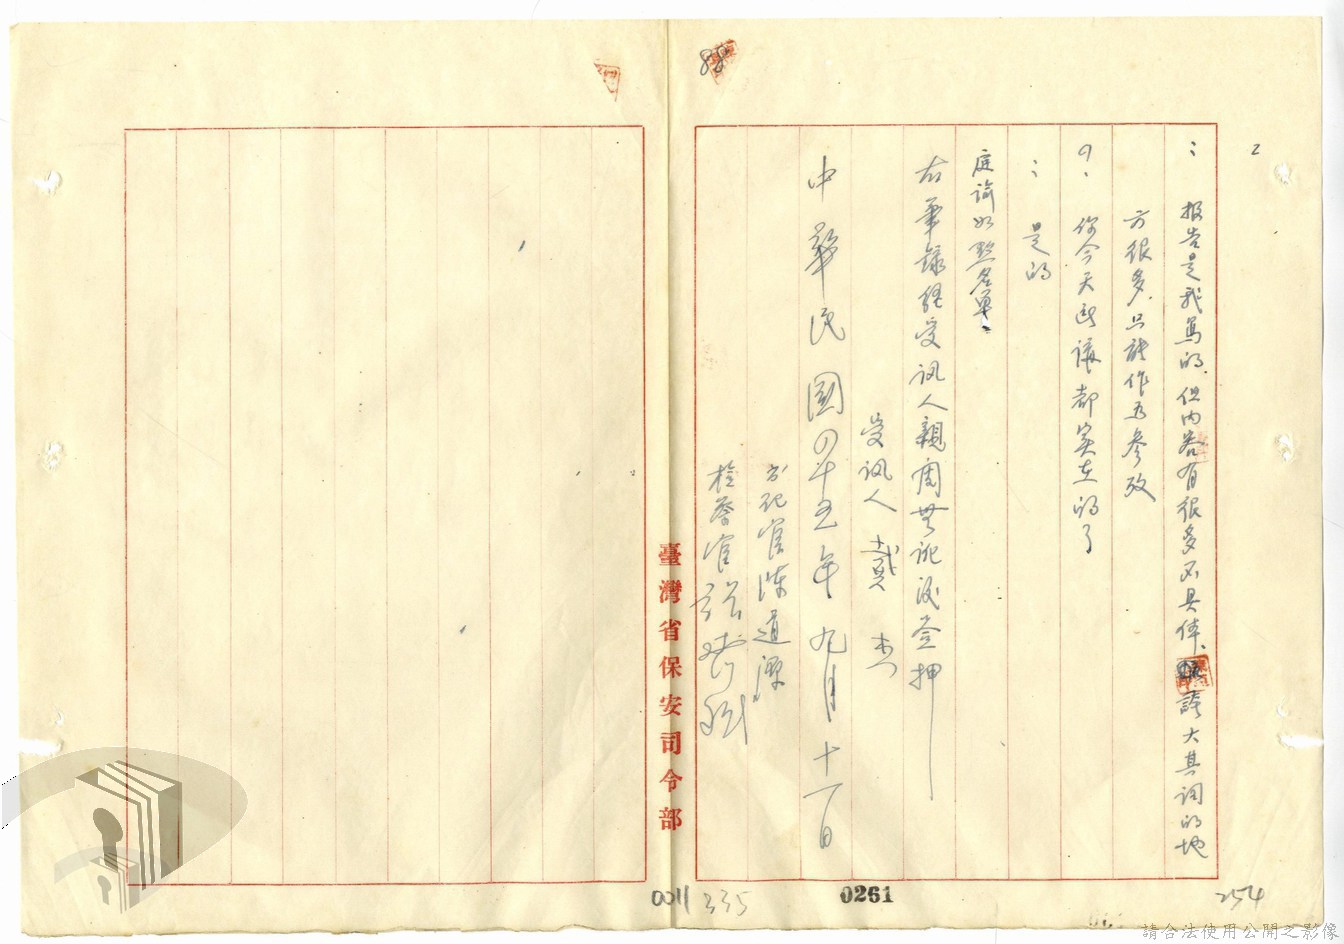 2
：報告是我寫的，但內容有很多不具体、誇大其詞的地
方很多，只能作為參攷
？、你今天所講都實在的了
：是的
庭諭如點名單
右筆錄經受訊人親閱無訛後簽押
受訊人 戴杰
中華民國四十五年九月十一日
書記官 陳道源
檢察官
臺灣省保安司令部
88
0011
335
0261
254
請合法使用公開之影像